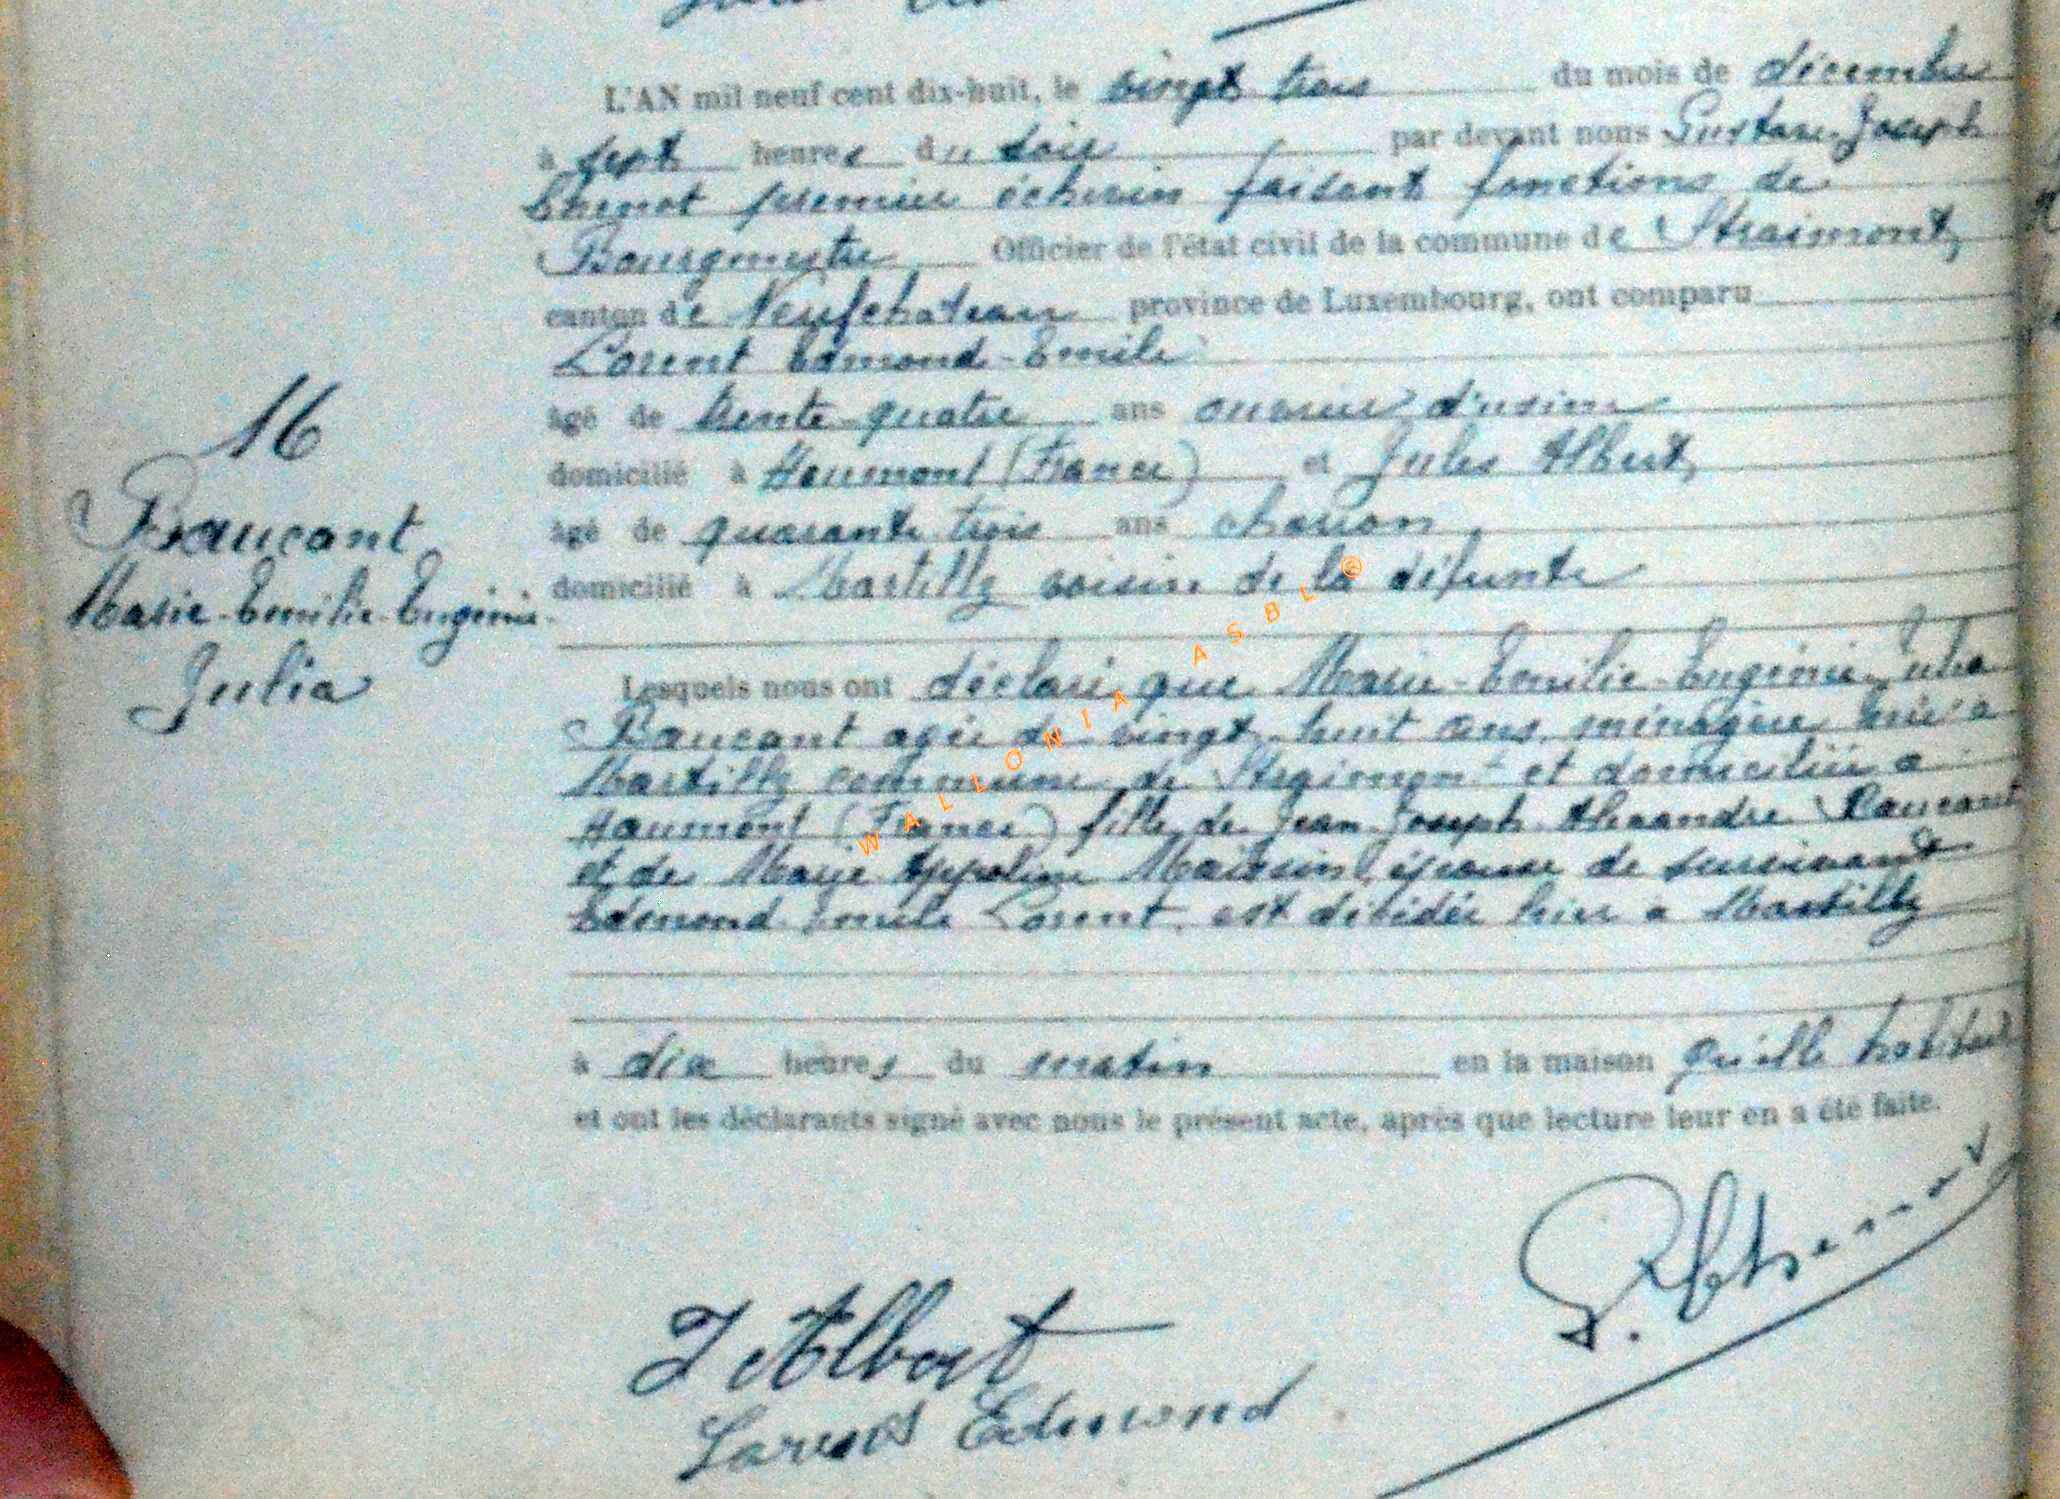 L'AN mil neuf cent dix-huit, le vingt trois du mois de décembre
à sept heures du soir par devant nous Gustave Joseph
premier échevin faisant fonctions de
Bourgmestre Officier de l'état civil de la commune de Straimont,
canton de Neufchateau province de Luxembourg, ont comparu
Lorent Edmond-Emile
âgé de trente-quatre ans ouvrier d'usine
domicilié à Haumont (France) et Jules Albert,
âgé de quarante trois ans
domicilié à Martilly voisin de la défunte
16
Baucant
Marie-Emilie-Eugénie-
Julia
Lesquels nous ont déclaré que Marie-Emilie-Eugénie-Julia
Baucant agée de vingt huit ans ménagère née à
Martilly commune de Straimont et domiciliée à
Haumont (France) fille de Jean-Joseph Alexandre Baucant
et de Marie épouse de survivant
Edmond Emile Lorent, est décédée hier a Martilly
à dix heures du matin en la maison qu'elle habitait
et ont les déclarants signé avec nous le présent acte, après que lecture leur en a été faite.
J Albert
Edmond
WALLONIA ASBL ®